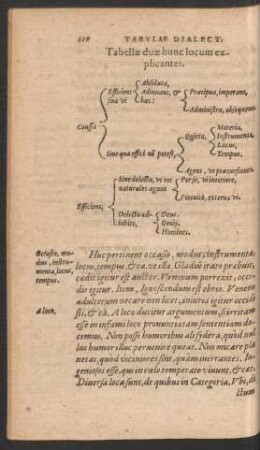 TABVLAE DIALECT.
Tabellæ duæ hunc locum ex-
plicantes.
Absoluta,
Efficiens
sua vi
Adiuuans, &
hæc:
Præcipua, imperans,
Administra, obsequens.
Caussa
Materia,
Instrumenta,
Locus,
Tempus.
Sine qua effici nõ potest,
Agens, vt præcursiones
Sine delectu, vt res
naturales agunt
Per se, vi interiore,
Fortuitò, externa vi.
Efficiens,
Delectu ad-
hibito,
Deus.
Genij.
Homines.
Occasio, mo-
dus, instru-
menta, locus,
tempus.
Huc pertinent occasio, modus, instrumenta,
locus, tempus, & cæ. vt illa. Gladiũ irato præbuit,
occidit igitur est auctor. Venenum porrexit, oc-
cidit igitur. Item, Ignoscendum est ebrio. Venena
adulterum necare non licet, iniuria igitur occidi-
sti, & cæ. A loco ducitur argumentum, si erratam
esse in infami loco pronuntiatam sententiam do-
A loco.
cemus. Non posse humoribus ali sydera, quòd nul-
lus humor illuc peruenire queat. Non micare pla-
netas, quòd viciniores sint, quàm inerrantes. In-
geniosos esse, qui in cælo temperato viuunt, & cæt.
Diuersa loca sunt, de quibus in Categoria, Vbi, di-
ctum